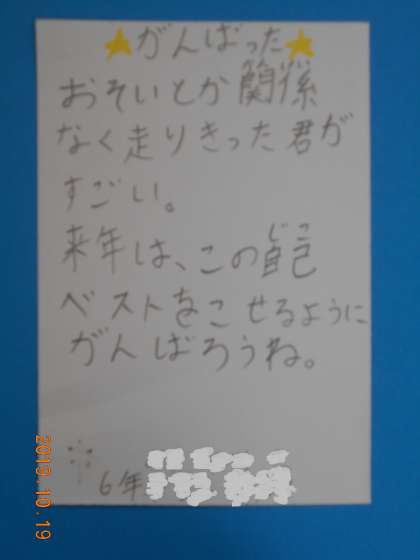 がんばった
おそいとか関係
なく走りきった君が
すごい。
来年は、この自己
ベストをこせるように
がんばろうね。
6年
2019.10.19